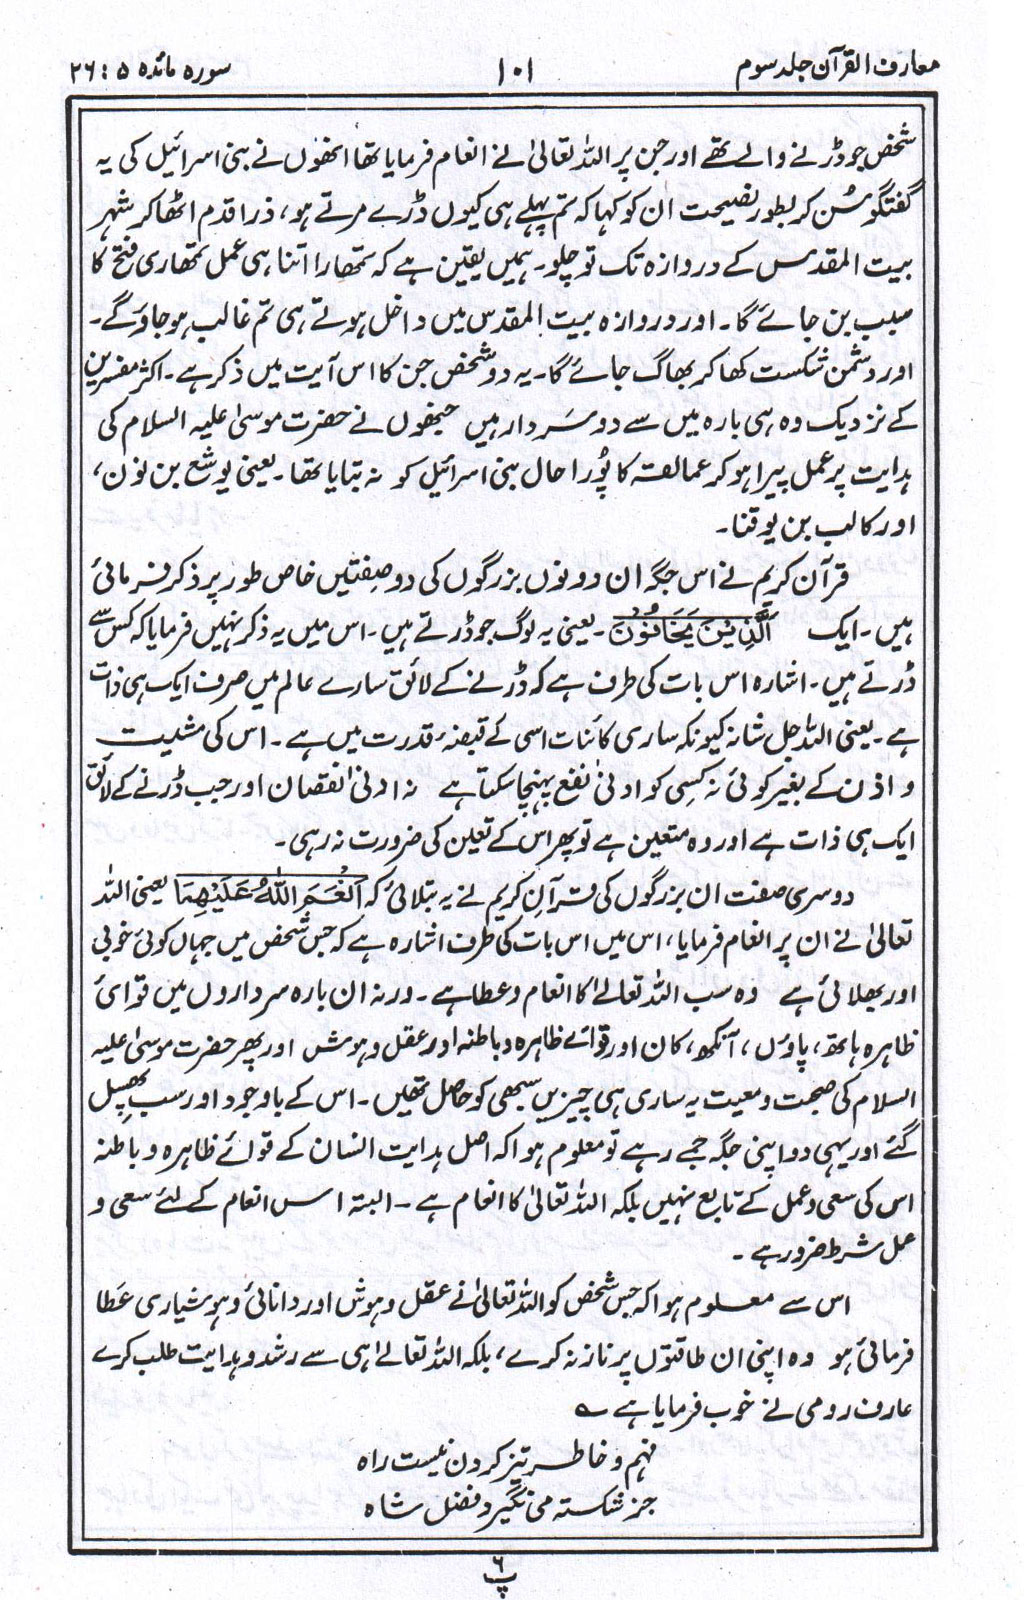 معارف القرآن جلد سوم
۱۰۱
سورہ مائدہ ۵ : ۲۶
شخص جو ڈرنے والے تھے اور جن پر اللہ تعالیٰ نے انعام فرمایا تھا انھوں نے بنی اسرائیل کی یہ
گفتگو سُن کر بطور نصیحت ان کو کہا کہ تم پہلے ہی کیوں ڈرے مرتے ہو، ذرا قدم اٹھا کر شہر
بیت المقدس کے دروازہ تک تو چلو۔ ہمیں یقین ہے کہ تمھارا اتنا ہی عمل تمھاری فتح کا
سبب بن جائے گا۔ اور دروازہ بیت المقدس میں داخل ہوتے ہی تم غالب ہو جاؤ گے۔
اور دشمن شکست کھا کر بھاگ جائے گا۔ یہ دو شخص جن کا اس آیت میں ذکر ہے۔ اکثر مفسرین
کے نزدیک وہ ہی بارہ میں سے دو سَردار ہیں جنھوں نے حضرت موسیٰ علیہ السلام کی
ہدایت پر عمل پیرا ہو کر عمالقہ کا پُورا حال بنی اسرائیل کو نہ بتایا تھا۔ یعنی یوشع بن نون،
اور کالب بن یوقنا۔
قرآن کریم نے اس جگہ ان دونوں بزرگوں کی دو صفتیں خاص طور پر ذکر فرمائی
ہیں۔ ایک اَلَّذِیْنَ یَخَافُوْنَ۔ یعنی یہ لوگ جو ڈرتے ہیں۔ اس میں یہ ذکر نہیں فرمایا کہ کس سے
ڈرتے ہیں۔ اشارہ اس بات کی طرف ہے کہ ڈرنے کے لائق سارے عالم میں صرف ایک ہی ذات
ہے۔ یعنی اللہ جل شانہ کیونکہ ساری کائنات اسی کے قبضۂ قدرت میں ہے۔ اس کی مشیت
و اذن کے بغیر کوئی نہ کسِی کو ادنیٰ نفع پہنچا سکتا ہے نہ ادنیٰ نقصان اور جب ڈرنے کے لائق
ایک ہی ذات ہے اور وہ متعین ہے تو پھر اس کے تعین کی ضرورت نہ رہی۔
دوسری صفت ان بزرگوں کی قرآنِ کریم نے یہ بتلائی کہ اَنْعَمَ اللّٰهُ عَلَیْهِمَا یعنی اللہ
تعالیٰ نے ان پر انعام فرمایا، اس میں اس بات کی طرف اشارہ ہے کہ جس شخص میں جہاں کوئی خوبی
اور بھلائی ہے وہ سب اللہ تعالےٰ کا انعام و عطا ہے۔ ورنہ ان بارہ سرداروں میں قوائے
ظاہرہ ہاتھ، پاؤں، آنکھ، کان اور قوائے ظاہرہ و باطنہ اور عقل و ہوش اور پھر حضرت موسیٰ علیہ
السلام کی صحبت و معیت یہ ساری ہی چیزیں سبھی کو حاصل تھیں۔ اس کے باوجود اور سب پھسِل
گئے اور یہی دو اپنی جگہ جمے رہے تو معلوم ہوا کہ اصل ہدایت انسان کے قوائے ظاہرہ و باطنہ
اس کی سعی و عمل کے تابع نہیں بلکہ اللہ تعالیٰ کا انعام ہے۔ البتہ اس انعام کے لئے سعی و
عمل شرط ضرور ہے۔
اس سے معلوم ہوا کہ جس شخص کو اللہ تعالیٰ نے عقل و ہوش اور دانائی و ہوشیاری عَطا
فرمائی ہو وہ اپنی ان طاقتوں پر ناز نہ کرے، بلکہ اللہ تعالےٰ ہی سے رشد و ہدایت طلب کرے
عارف رومی نے خوب فرمایا ہے ؎
فہم و خاطر تیز کردن نیست راہ
جز شکستہ می نگیرد فضل شاہ
پ ۶